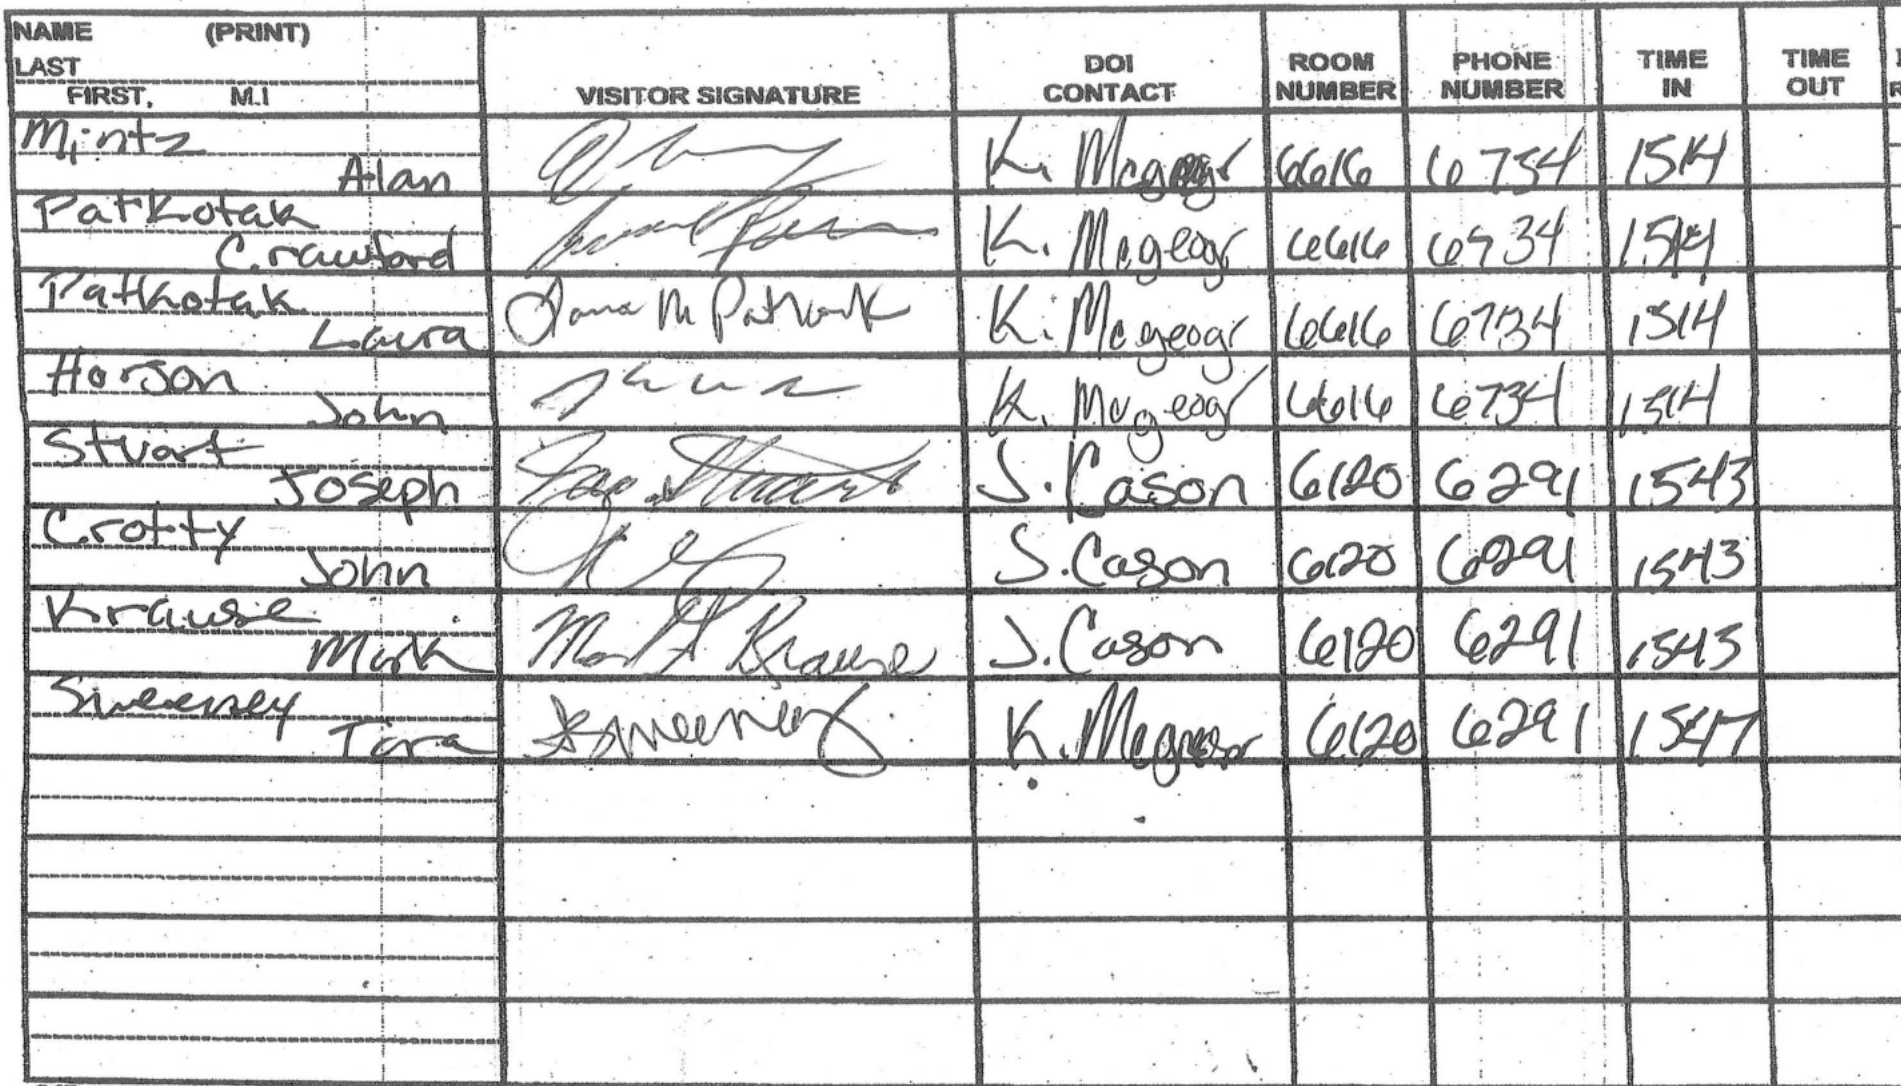 NAME (PRINT)
LAST
FIRST, M.I
VISITOR SIGNATURE
DOI CONTACT
ROOM NUMBER
PHONE NUMBER
TIME IN
TIME OUT
Mintz
Alan K. 6616 6734 1514
Patkotak
Crawford K. Mcgeogr 6616 6734 1514
Patkotak
Laura K. Mcgeogr 6616 6734 1514
Horson
John K. Mcgeogr 6616 6734 1514
Stuart
Joseph J. Cason 6120 6291 1543
Crotty
John J. Cason 6120 6291 1543
Krause
Mark Mark Krause J. Cason 6120 6291 1543
Sweeney
Tara Sweeney K. 6120 6291 1547